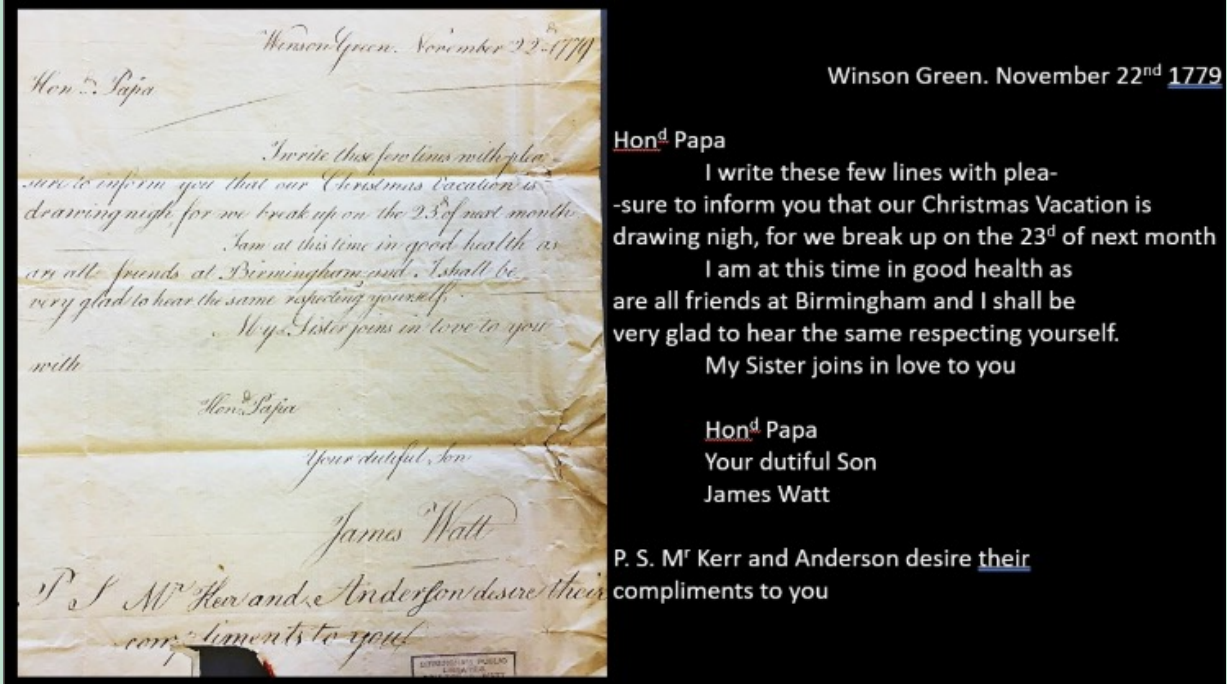 Winson Green. November 22d 1779
Hond. Papa
I write these few lines with plea-
sure to inform you that our Christmas Vacation is
drawing nigh, for we break up on the 23d of next month
I am at this time in good health as
are all friends at Birmingham and I shall be
very glad to hear the same respecting yourself.
My Sister joins in love to you
with
Hond Papa
Your dutiful Son
James Watt
P S Mr Keir and Anderson desire their
compliments to you
Winson Green. November 22nd 1779
Hond Papa
I write these few lines with plea-
-sure to inform you that our Christmas Vacation is
drawing nigh, for we break up on the 23d of next month
I am at this time in good health as
are all friends at Birmingham and I shall be
very glad to hear the same respecting yourself.
My Sister joins in love to you
Hond Papa
Your dutiful Son
James Watt
P. S. Mr Kerr and Anderson desire their
compliments to you